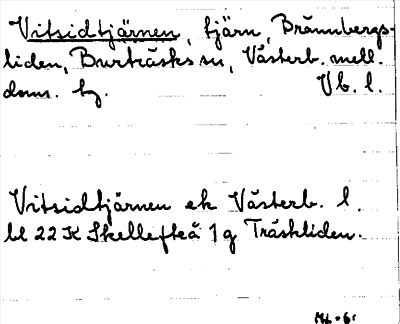 Vitsidtjärnen, tjärn, Brännbergs-
liden, Burträsks sn, Västerb. mell.
doms. hg. Vb. l.
Vitsidtjärnen ek Västerb. l.
bl 22 K Skellefteå 1 g Träskliden.